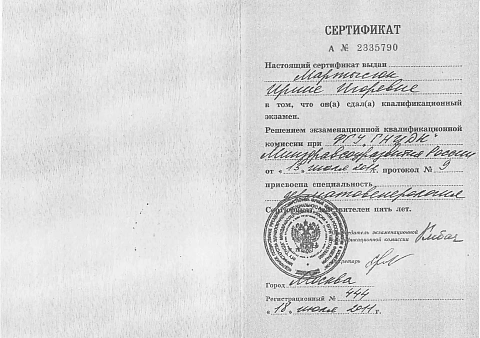 СЕРТИФИКАТ
А № 2335790
Настоящий сертификат выдан
Мартысюк
Ирине Игоревне
в том, что он(а) сдал(а) квалификационный
экзамен.
Решением экзаменационной квалификационной
комиссии при ФГУ „ГНЦДК"
Минздравсоцразвития России
от „15" июля 2011г. протокол № 9
присвоена специальность
дерматовенерология
Сертификат действителен пять лет.
экзаменационной
комиссии
Город Москва
Регистрационный № 444
„18" июля 2011 г.